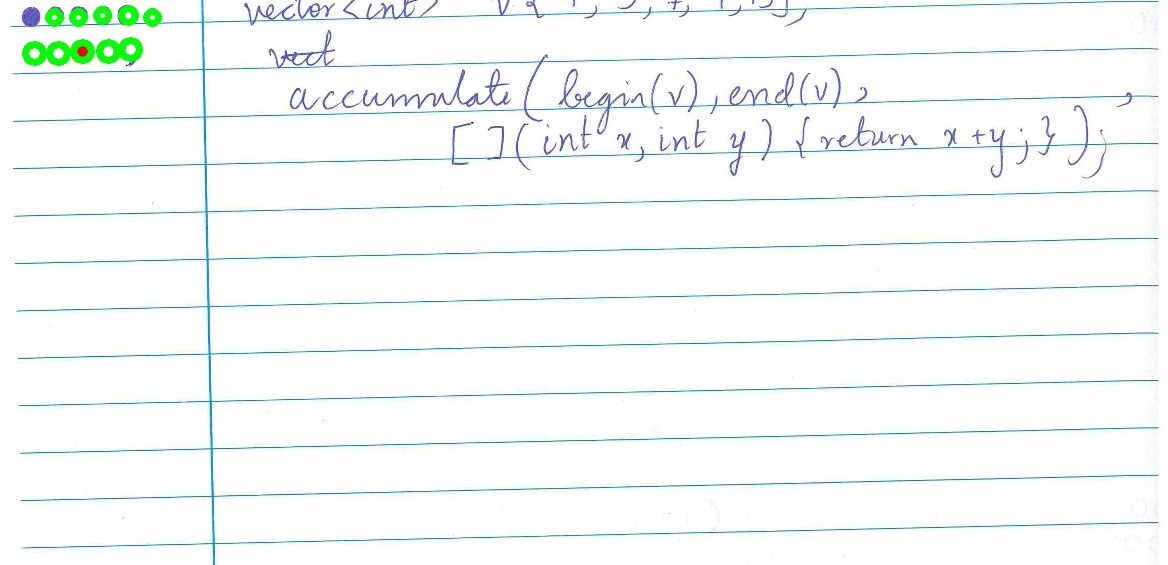 vector<int> v {
accumulate ( begin(v), end(v),
[ ](int x, int y) { return x+y; } );